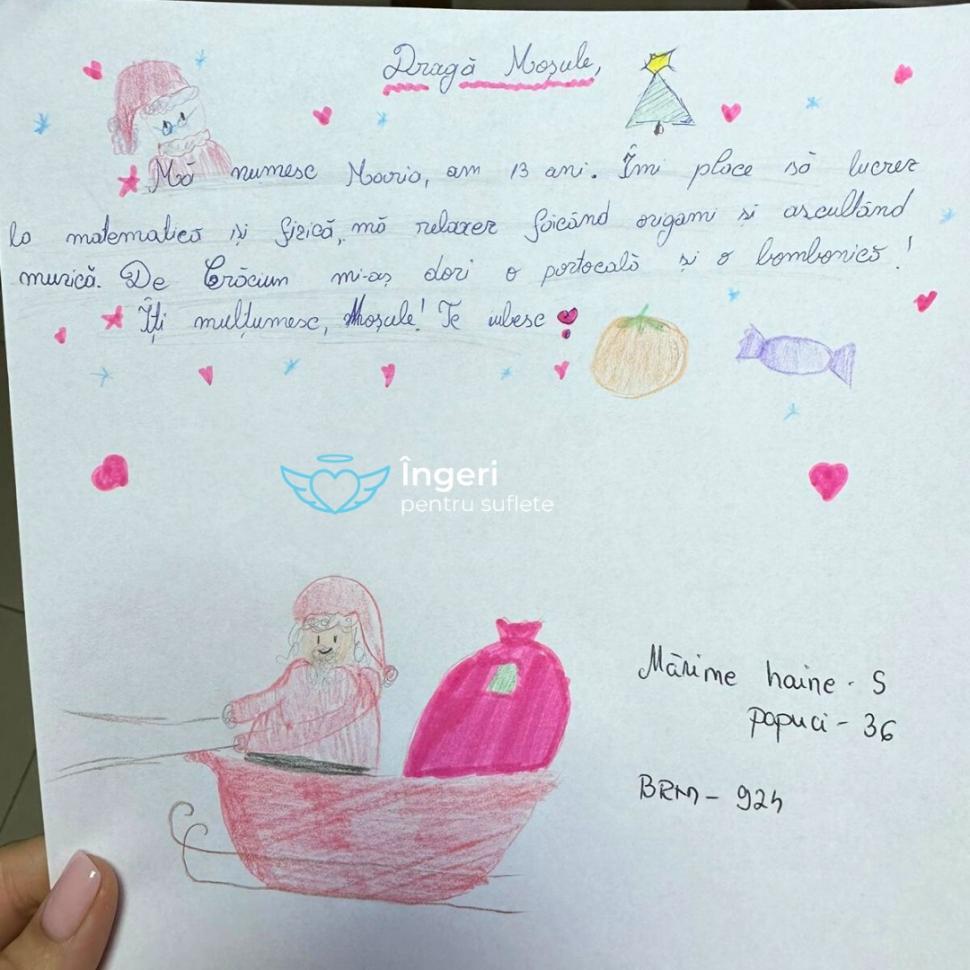 Dragă Moșule,
Mă numesc Maria, am 13 ani. Îmi place să lucrez
la matematică și fizică, mă relaxez făcând origami și ascultând
muzică. De Crăciun mi-aș dori o portocală și o bombonică!
Îți mulțumesc, Moșule! Te iubesc
Îngeri
pentru suflete
Mărime haine - S
papuci - 36
BRM - 924